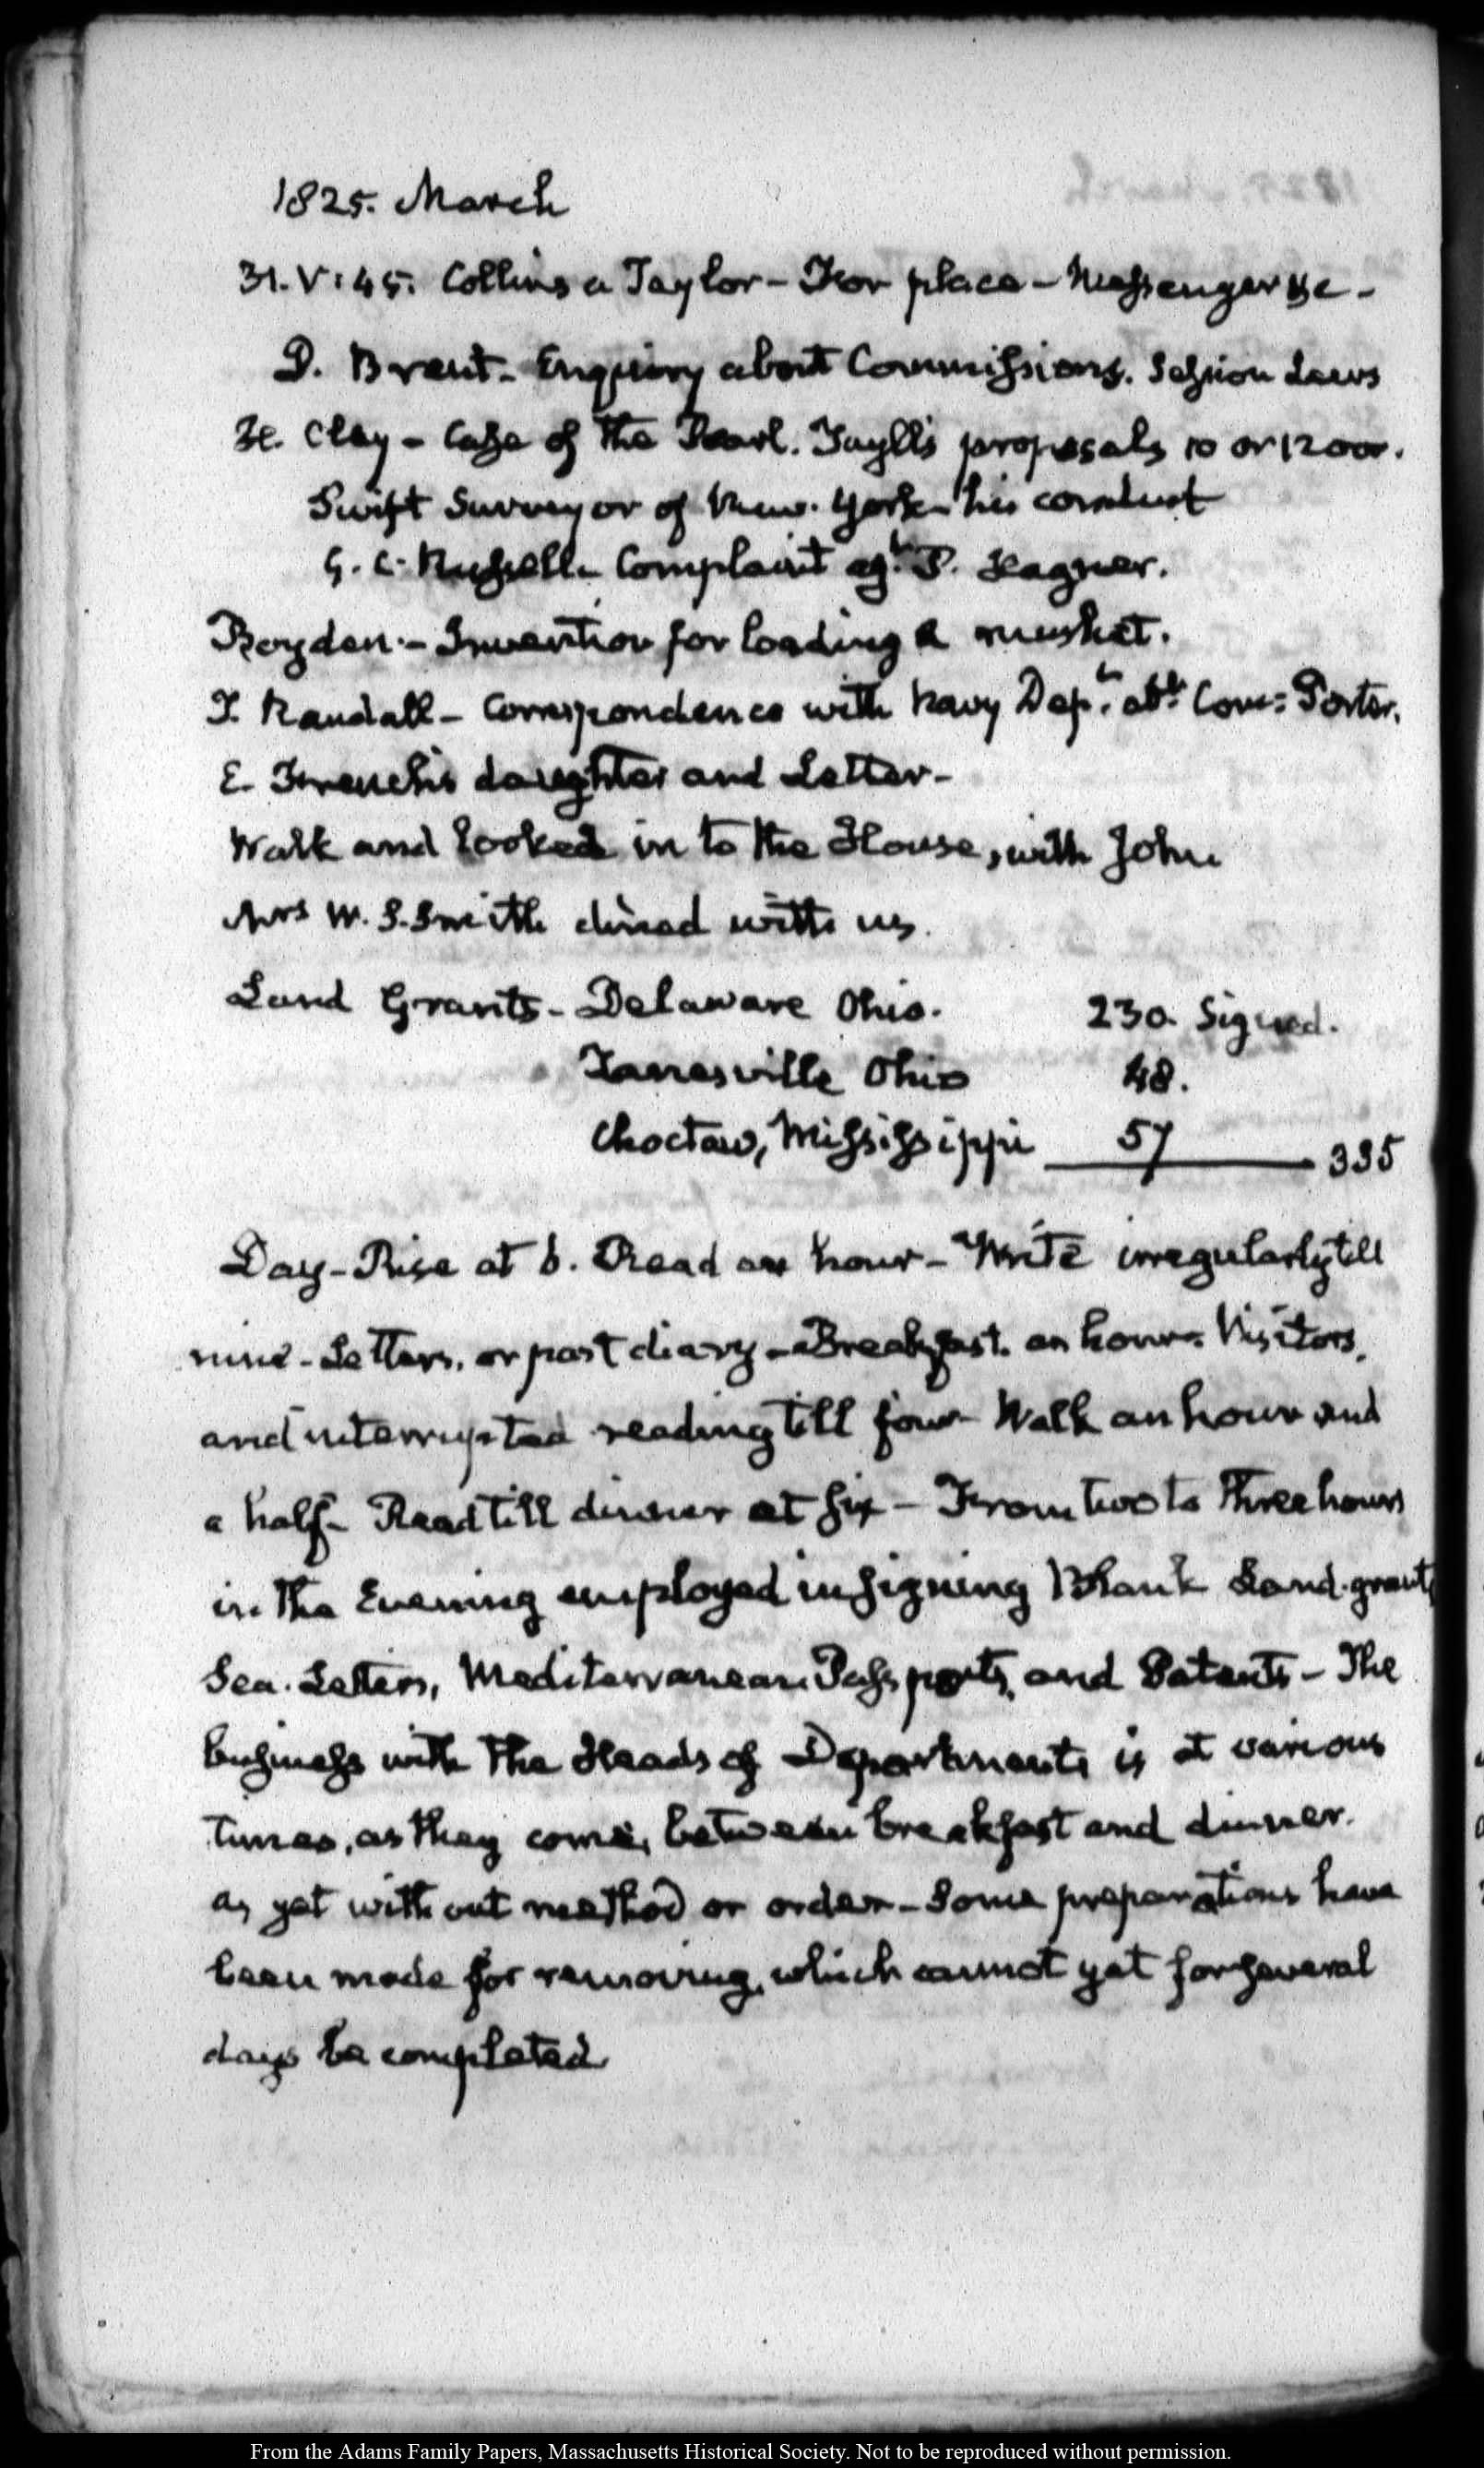 1825. March
31. V:45. Collins a Taylor - For place - Messenger &c -
D. Brent - Enquiry about Commissions. Session Laws
H. Clay - Case of the Pearl. proposals 10 or 1200.
Swift Surveyor of New-York - his conduct
G. C. Russell - Complaint agt. P. Hagner.
Boyden - Invention for loading a musket.
T. Randall - Correspondence with Navy Dept. abt. Comr: Porter.
E. French's daughter and Letter -
Walk and looked in to the House, with John
Mrs W. S. Smith dined with us.
Land Grants - Delaware Ohio. 230. Signed.
Zanesville Ohio 48.
Choctaw, Mississippi 57 335
Day - Rise at 6. Read an hour - Write irregularly till
nine - Letters, or past diary - Breakfast. an hour - Visitors,
and interrupted reading till four - Walk an hour and
a half - Read till dinner at six - From two to three hours
in the Evening employed in signing Blank Land-grants
Sea-Letters, Mediterranean Passports, and Patents - The
business with the Heads of Departments is at various
times, as they come, between breakfast and dinner.
as yet without method or order - Some preparations have
been made for removing, which cannot yet for several
days be completed
From the Adams Family Papers, Massachusetts Historical Society. Not to be reproduced without permission.